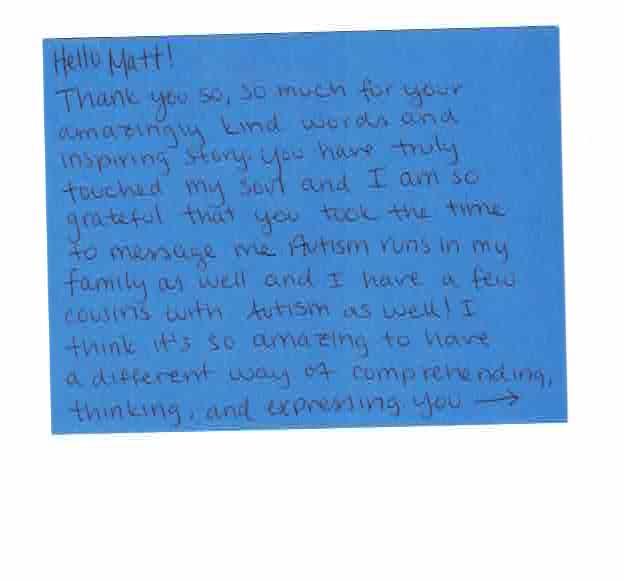 Hello Matt!
Thank you so, so much for your
amazingly kind words and
inspiring story. You have truly
touched my soul and I am so
grateful that you took the time
to message me. Autism runs in my
family as well and I have a few
cousins with Autism as well! I
think it's so amazing to have
a different way of comprehending,
thinking, and expressing you →